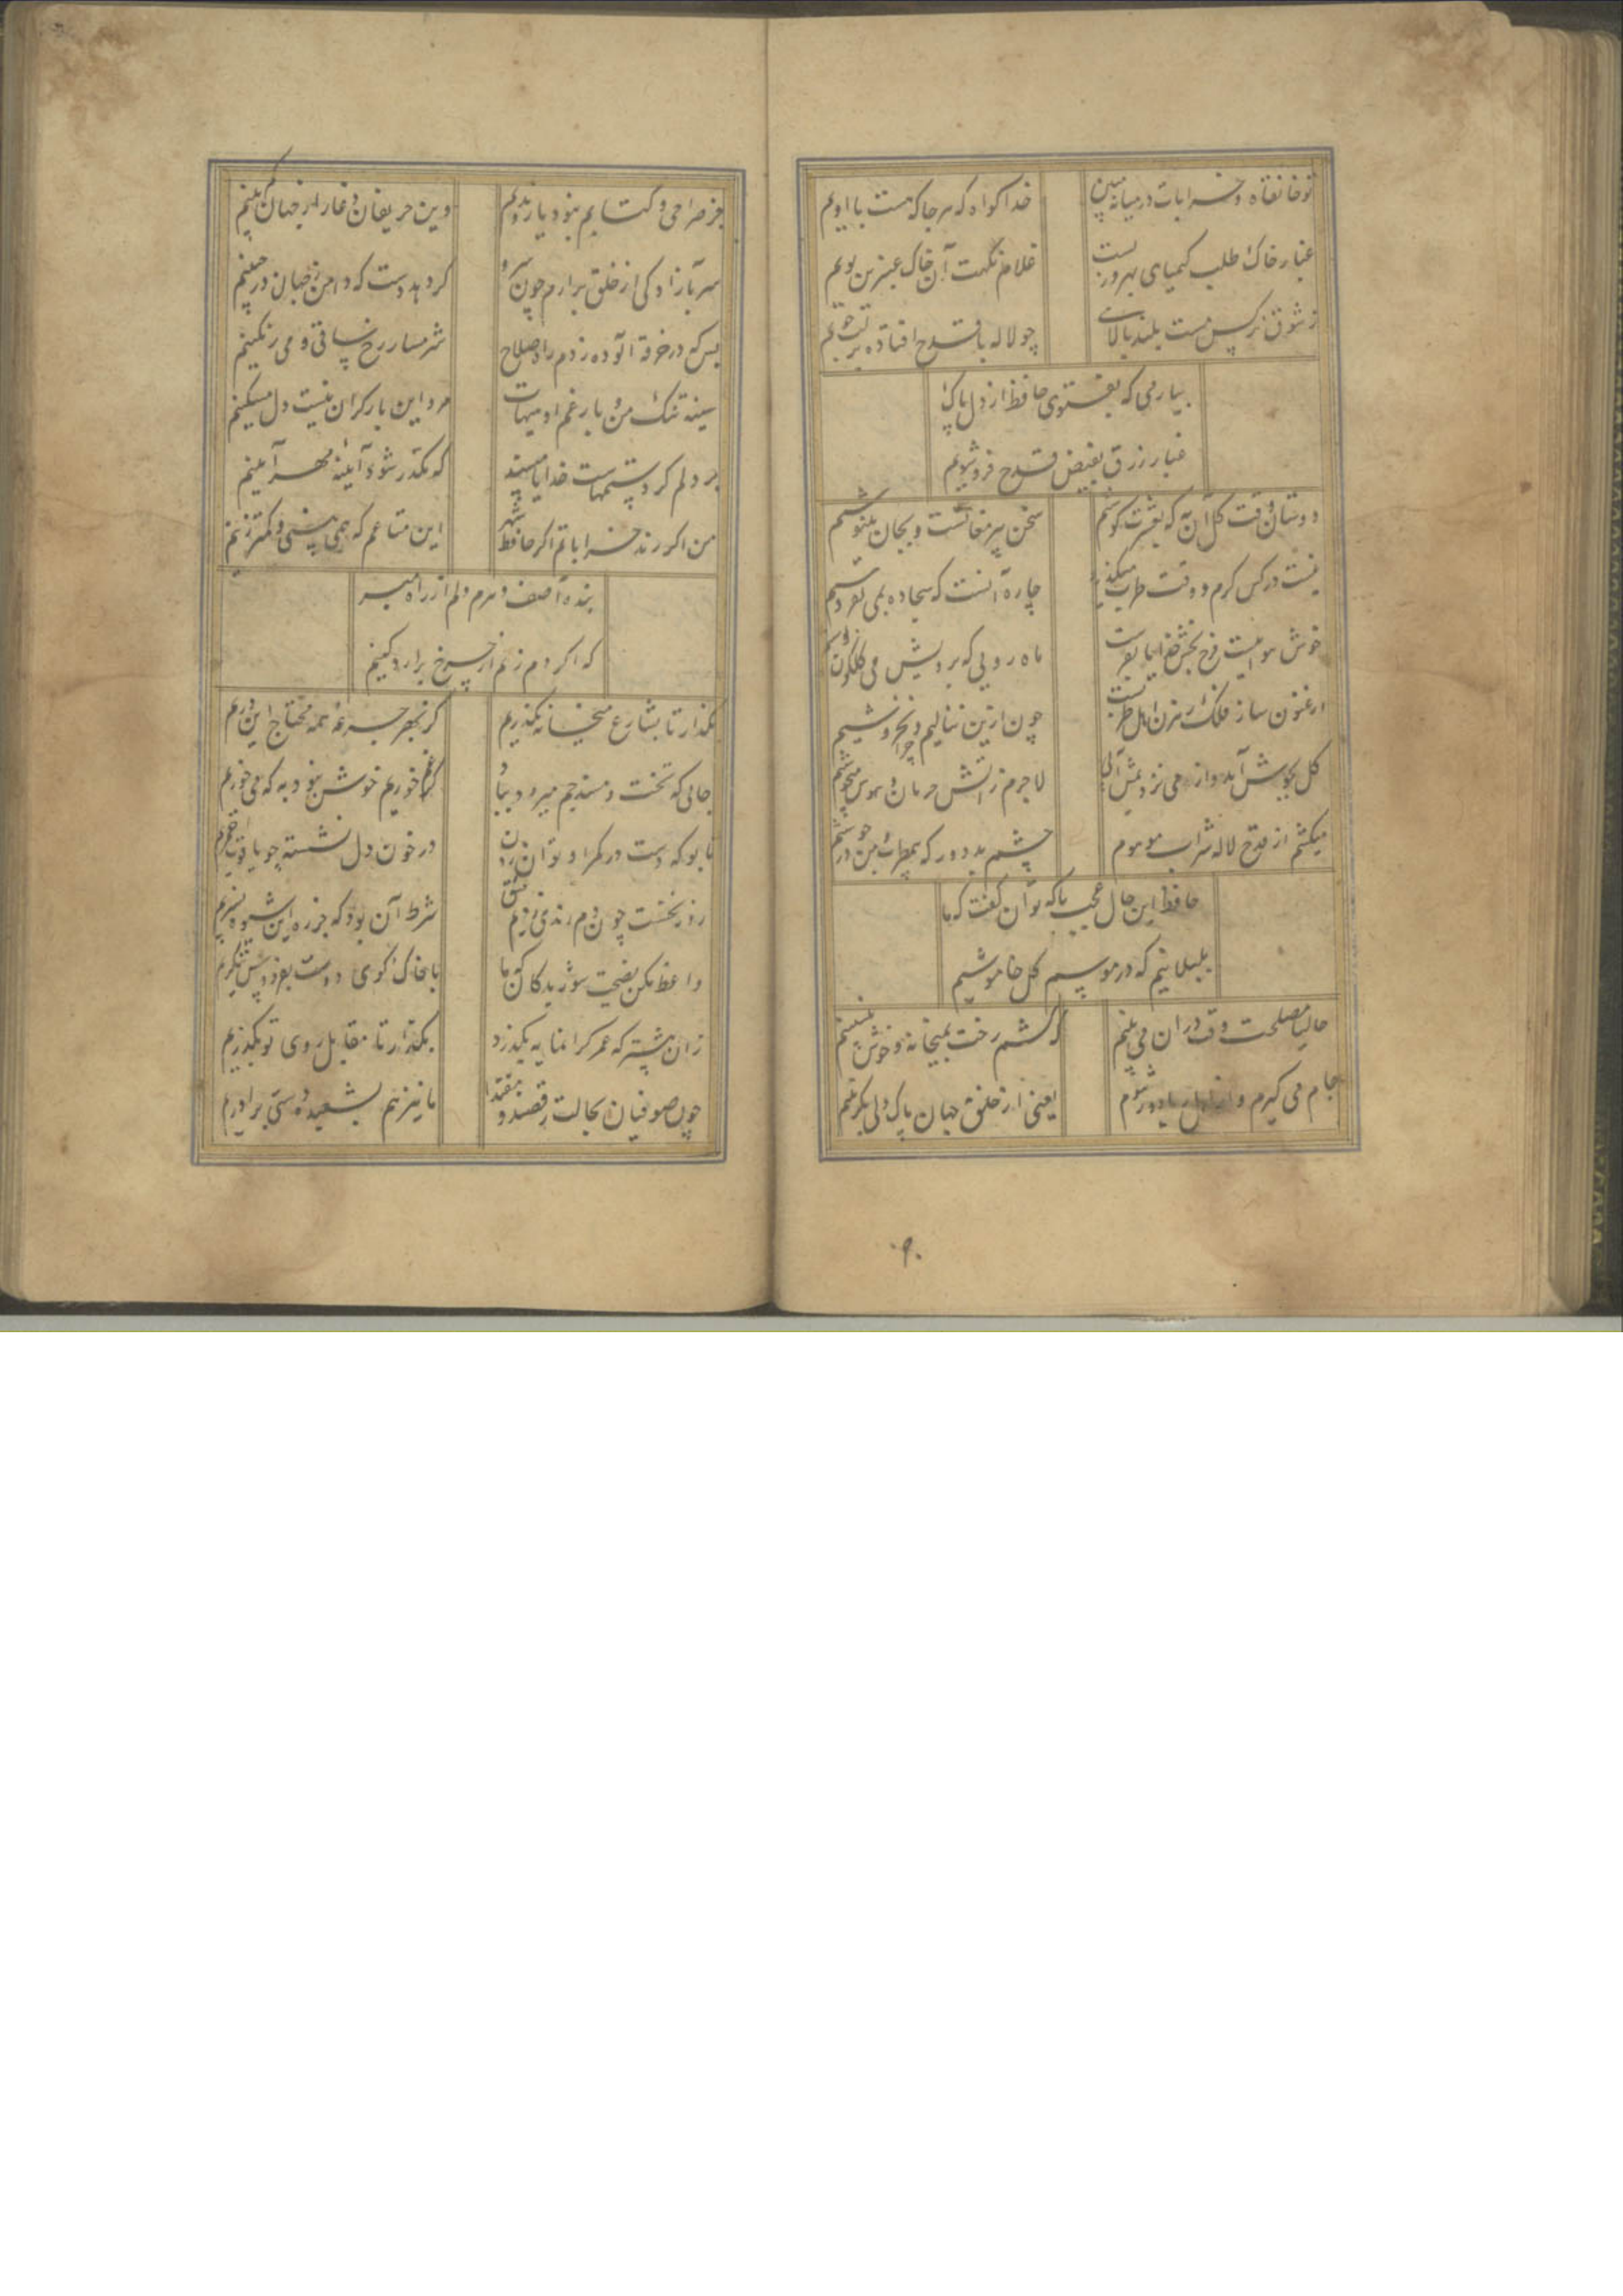 تو خانقاه و خرابات در میانه مبین
خدا کواه که هر جا که هست با اویم
غبار خاک طلب کیمیای بهروزیست
غلام نکهت آن خاک عنبرین بویم
ز شوق نرکس مست بلند بالایی
چو لاله با قدح افتاده بر لب جویم
بیار می که بفتوی حافظ از دل پاک
غبار زرق بفیض قدح فروشویم
دوستان وقت کل آن به که بعشرت کوشیم
سخن پیر مغانست و بجان بنیوشیم
نیست در کس کرم و وقت طرب میکذرد
چاره آنست که سجاده بمی بفروشیم
خوش هوائیست فرح بخش خدایا بفرست
ماه رویی که برویش می کلکون نوشیم
ارغنون ساز فلک رهزن اهل طربست
چون ازین ننالیم و چرا نخروشیم
کل بجوش آمد و از می نزدیمش آبی
لاجرم ز آتش حرمان و هوس میجوشیم
میکشیم از قدح لاله شراب موهوم
چشم بد دور که بی مطرب و می در جوشیم
حافظ این حال عجب با که توان کفت که ما
بلبلانیم که در موسم کل خاموشیم
حالیا مصلحت وقت در آن می بینم
که کشم رخت بمیخانه و خوش بنشینم
جام می کیرم و از اهل ریا دور شوم
یعنی از خلق جهان پاک دلی بکزینم
جز صراحی و کتابم نبود یار و ندیم
سر بآزادکی از خلق برآرم چون سرو
کر دهد دست که دامن ز جهان درچینم
بس که در خرقه آلوده زدم لاف صلاح
شرمسار رخ ساقی و می رنکینم
سینه تنک من و بار غم او هیهات
مرد این بار کران نیست دل مسکینم
بر دلم کرد ستمهاست خدایا مپسند
که مکدر شود آیینه مهر آیینم
من اکر رند خراباتم اکر حافظ شهر
این متاعم که همی بینی و کمتر زینم
بنده آصف عهدم دلم از راه مبر
که اکر دم زنم از چرخ برآرد کینم
بکذار تا بشارع میخانه بکذریم
کز بهر جرعه همه محتاج این دریم
جایی که تخت و مسند جم میرود بباد
کر غم خوریم خوش نبود به که می خوریم
تا بو که دست در کمر او توان زدن
در خون دل نشسته چو یاقوت احمریم
روز نخست چون دم رندی زدیم و عشق
شرط آن بود که جز ره این شیوه نسپریم
واعظ مکن نصیحت شوریدکان که ما
با خاک کوی دوست بفردوس ننکریم
زان پیشتر که عمر کرانمایه بکذرد
بکذار تا مقابل روی تو بکذریم
چون صوفیان بحالت رقصند و مقتدا
ما نیز هم بشعبده دستی برآوریم